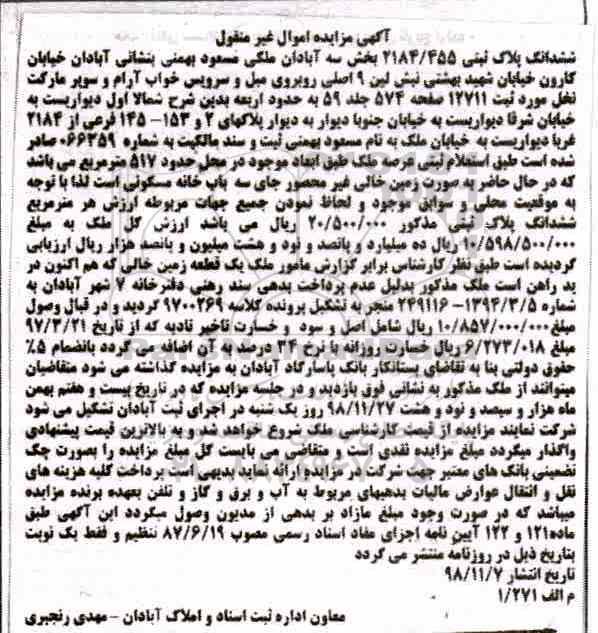 آگهی مزایده اموال غیر منقول
ششدانگ پلاک ثبتی ۲۱۸۴/۴۵۵ بخش سه آبادان ملکی مسعود بهمنی بنشانی آبادان خیابان
کارون خیابان شهید بهشتی نبش لین ۹ اصلی روبروی مبل و سرویس خواب آرام و سوپر مارکت
نخل مورد ثبت ۱۲۷۱۱ صفحه ۵۷۴ جلد ۵۹ به حدود اربعه بدین شرح شمالا اول دیواریست به
خیابان شرقا دیواریست به خیابان جنوبا دیوار به دیوار پلاکهای ۲ و ۱۵۳- ۱۴۵ فرعی از ۲۱۸۴
غربا دیواریست به خیابان ملک به نام مسعود بهمنی ثبت و سند مالکیت به شماره ۰۶۶۳۵۹ صادر
شده است طبق استعلام ثبتی عرصه ملک طبق ابعاد موجود در محل حدود ۵۱۷ مترمربع می باشد
که در حال حاضر به صورت زمین خالی غیر محصور جای سه باب خانه مسکونی است لذا با توجه
به موقعیت محلی و سوابق موجود و لحاظ نمودن جمیع جهات مربوطه ارزش هر مترمربع
ششدانگ پلاک ثبتی مذکور ۲۰/۵۰۰/۰۰۰ ریال می باشد ارزش کل ملک به مبلغ
۱۰/۵۹۸/۵۰۰/۰۰۰ ریال ده میلیارد و پانصد و نود و هشت میلیون و پانصد هزار ریال ارزیابی
گردیده است طبق نظر کارشناس برابر گزارش مامور ملک یک قطعه زمین خالی که هم اکنون در
ید راهن است ملک مذکور بدلیل عدم پرداخت بدهی سند رهنی دفترخانه ۷ شهر آبادان به
شماره ۱۳۹۴/۳/۵- ۲۴۹۱۱۶ منجر به تشکیل پرونده کلاسه ۹۷۰۰۲۶۹ گردید و در قبال وصول
مبلغ ۱۰/۸۵۷/۰۰۰/۰۰۰ ریال شامل اصل و سود و خسارت تاخیر تادیه که از تاریخ ۹۷/۳/۲۱
مبلغ ۶/۲۷۳/۰۱۸ ریال خسارت روزانه با نرخ ۳۴ درصد به آن اضافه می گردد بانضمام ۵٪
حقوق دولتی بنا به تقاضای بستانکار بانک پاسارگاد آبادان به مزایده گذاشته می شود متقاضیان
میتوانند از ملک مذکور به نشانی فوق بازدید و در جلسه مزایده که در تاریخ بیست و هفتم بهمن
ماه هزار و سیصد و نود و هشت ۹۸/۱۱/۲۷ روز یک شنبه در اجرای ثبت آبادان تشکیل می شود
شرکت نمایند مزایده از قیمت کارشناسی ملک شروع خواهد شد و به بالاترین قیمت پیشنهادی
واگذار میگردد مبلغ مزایده نقدی است و متقاضی می بایست کل مبلغ مزایده را بصورت چک
تضمینی بانک های معتبر جهت شرکت در مزایده ارائه نماید بدیهی است پرداخت کلیه هزینه های
نقل و انتقال عوارض مالیات بدهیهای مربوط به آب و برق و گاز و تلفن بعهده برنده مزایده
میباشد که در صورت وجود مبلغ مازاد بر بدهی از مدیون وصول میگردد این آگهی طبق
ماده۱۲۱ و ۱۲۲ آیین نامه اجرای مفاد اسناد رسمی مصوب ۸۷/۶/۱۹ تنظیم و فقط یک نوبت
بتاریخ ذیل در روزنامه منتشر می گردد
تاریخ انتشار ۹۸/۱۱/۷
م الف ۱/۲۷۱
معاون اداره ثبت اسناد و املاک آبادان - مهدی رنجبری